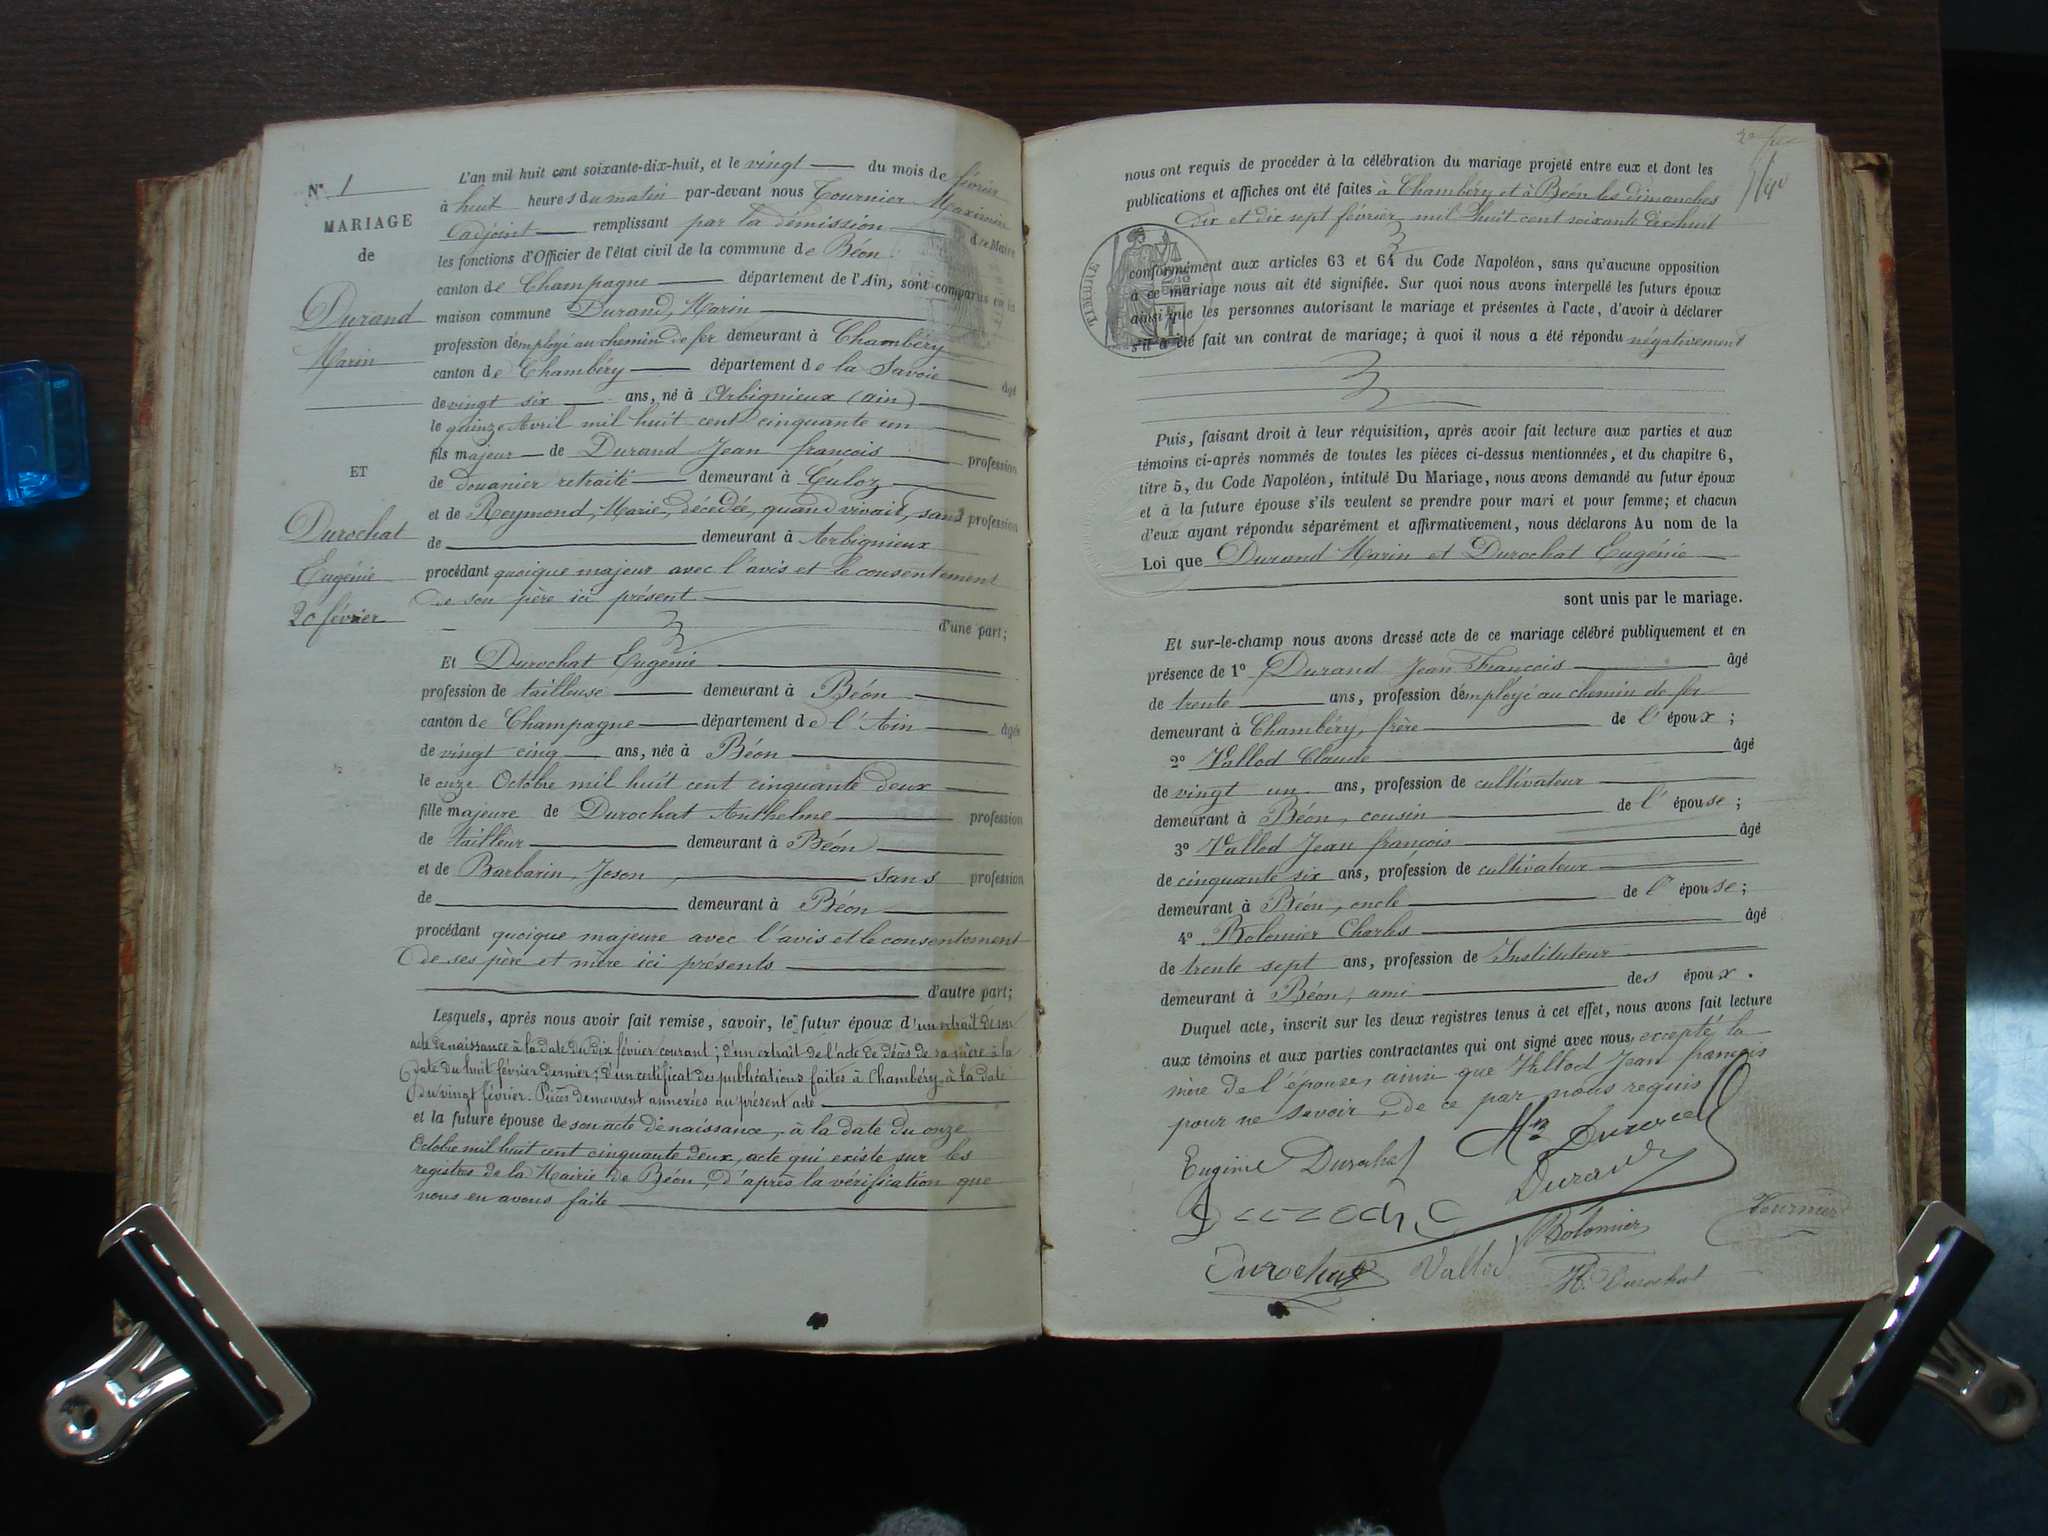 N° 1
MARIAGE
de
Durand
Marin
ET
Durochat
Eugénie
20 février
L'an mil huit cent soixante-dix-huit, et le vingt du mois de février
à huit heures du matin par-devant nous Tournier Maximin
adjoint remplissant par la démission du Maire
les fonctions d'Officier de l'état civil de la commune de Béon
canton de Champagne département de l'Ain, sont comparus en la
maison commune Durand, Marin
profession d'employé au chemin de fer demeurant à Chambéry
canton de Chambéry département de la Savoie âgé
de vingt six ans, né à Arbignieux (ain)
le quinze Avril mil huit cent cinquante un
fils majeur de Durand Jean françois profession
de douanier retraité demeurant à Culoz
et de Reymond, Marie, décédée, quand vivait, sans profession
de demeurant à Arbignieux
procédant quoique majeur avec l'avis et le consentement
de son père ici présent
d'une part;
Et Durochat Eugénie
profession de tailleuse demeurant à Béon
canton de Champagne département de l'Ain âgée
de vingt cinq ans, née à Béon
le onze Octobre mil huit cent cinquante deux
fille majeure de Durochat Anthelme profession
de tailleur demeurant à Béon
et de Barbarin, Joson, sans profession
de demeurant à Béon
procédant quoique majeure avec l'avis et le consentement
de ses père et mère ici présents
d'autre part;
Lesquels, après nous avoir fait remise, savoir, le futur époux d'un extrait de son
acte de naissance à la date du dix février courant; d'un extrait de l'acte de décès de sa mère à la
date du huit février dernier; d'un certificat des publications faites à Chambéry à la date
du vingt février. Pièces demeurent annexées au présent acte
et la future épouse de son acte de naissance, à la date du onze
Octobre mil huit cent cinquante deux, acte qui existe sur les
registres de la Mairie de Béon, d'après la vérification que
nous en avons faite
nous ont requis de procéder à la célébration du mariage projeté entre eux et dont les
publications et affiches ont été faites à Chambéry et à Béon les dimanches
dix et dix sept février mil huit cent soixante dix huit
TIMBRE
conformément aux articles 63 et 64 du Code Napoléon, sans qu'aucune opposition
à ce mariage nous ait été signifiée. Sur quoi nous avons interpellé les futurs époux
ainsi que les personnes autorisant le mariage et présentes à l'acte, d'avoir à déclarer
s'il a été fait un contrat de mariage; à quoi il nous a été répondu négativement
Puis, faisant droit à leur réquisition, après avoir fait lecture aux parties et aux
témoins ci-après nommés de toutes les pièces ci-dessus mentionnées, et du chapitre 6,
titre 5, du Code Napoléon, intitulé Du Mariage, nous avons demandé au futur époux
et à la future épouse s'ils veulent se prendre pour mari et pour femme; et chacun
d'eux ayant répondu séparément et affirmativement, nous déclarons Au nom de la
Loi que Durand Marin et Durochat Eugénie
sont unis par le mariage.
Et sur-le-champ nous avons dressé acte de ce mariage célébré publiquement et en
présence de 1° Durand Jean François âgé
de trente ans, profession d'employé au chemin de fer
demeurant à Chambéry, frère de l'époux;
2° Vallod Claude âgé
de vingt un ans, profession de cultivateur
demeurant à Béon, cousin de l'épouse;
3° Vallod Jean françois âgé
de cinquante six ans, profession de cultivateur
demeurant à Béon, oncle de l'épouse;
4° Bolomier Charles âgé
de trente sept ans, profession de Instituteur
demeurant à Béon, ami des époux.
Duquel acte, inscrit sur les deux registres tenus à cet effet, nous avons fait lecture
aux témoins et aux parties contractantes qui ont signé avec nous, excepté la
mère de l'épouse, ainsi que Vallod Jean françois
pour ne savoir, de ce par nous requis
Eugénie Durochat
Durand
Bolomier
Tournier
Durochat
Vallod
Durochat